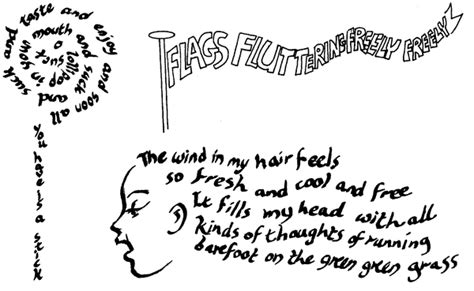 suck a lollipop in your mouth and suck and suck and taste and enjoy and soon all
you have is a stick
FLAGS FLUTTERING FREELY FREELY
The wind in my hair feels
so fresh and cool and free
It fills my head with all
kinds of thoughts of running
barefoot on the green green grass